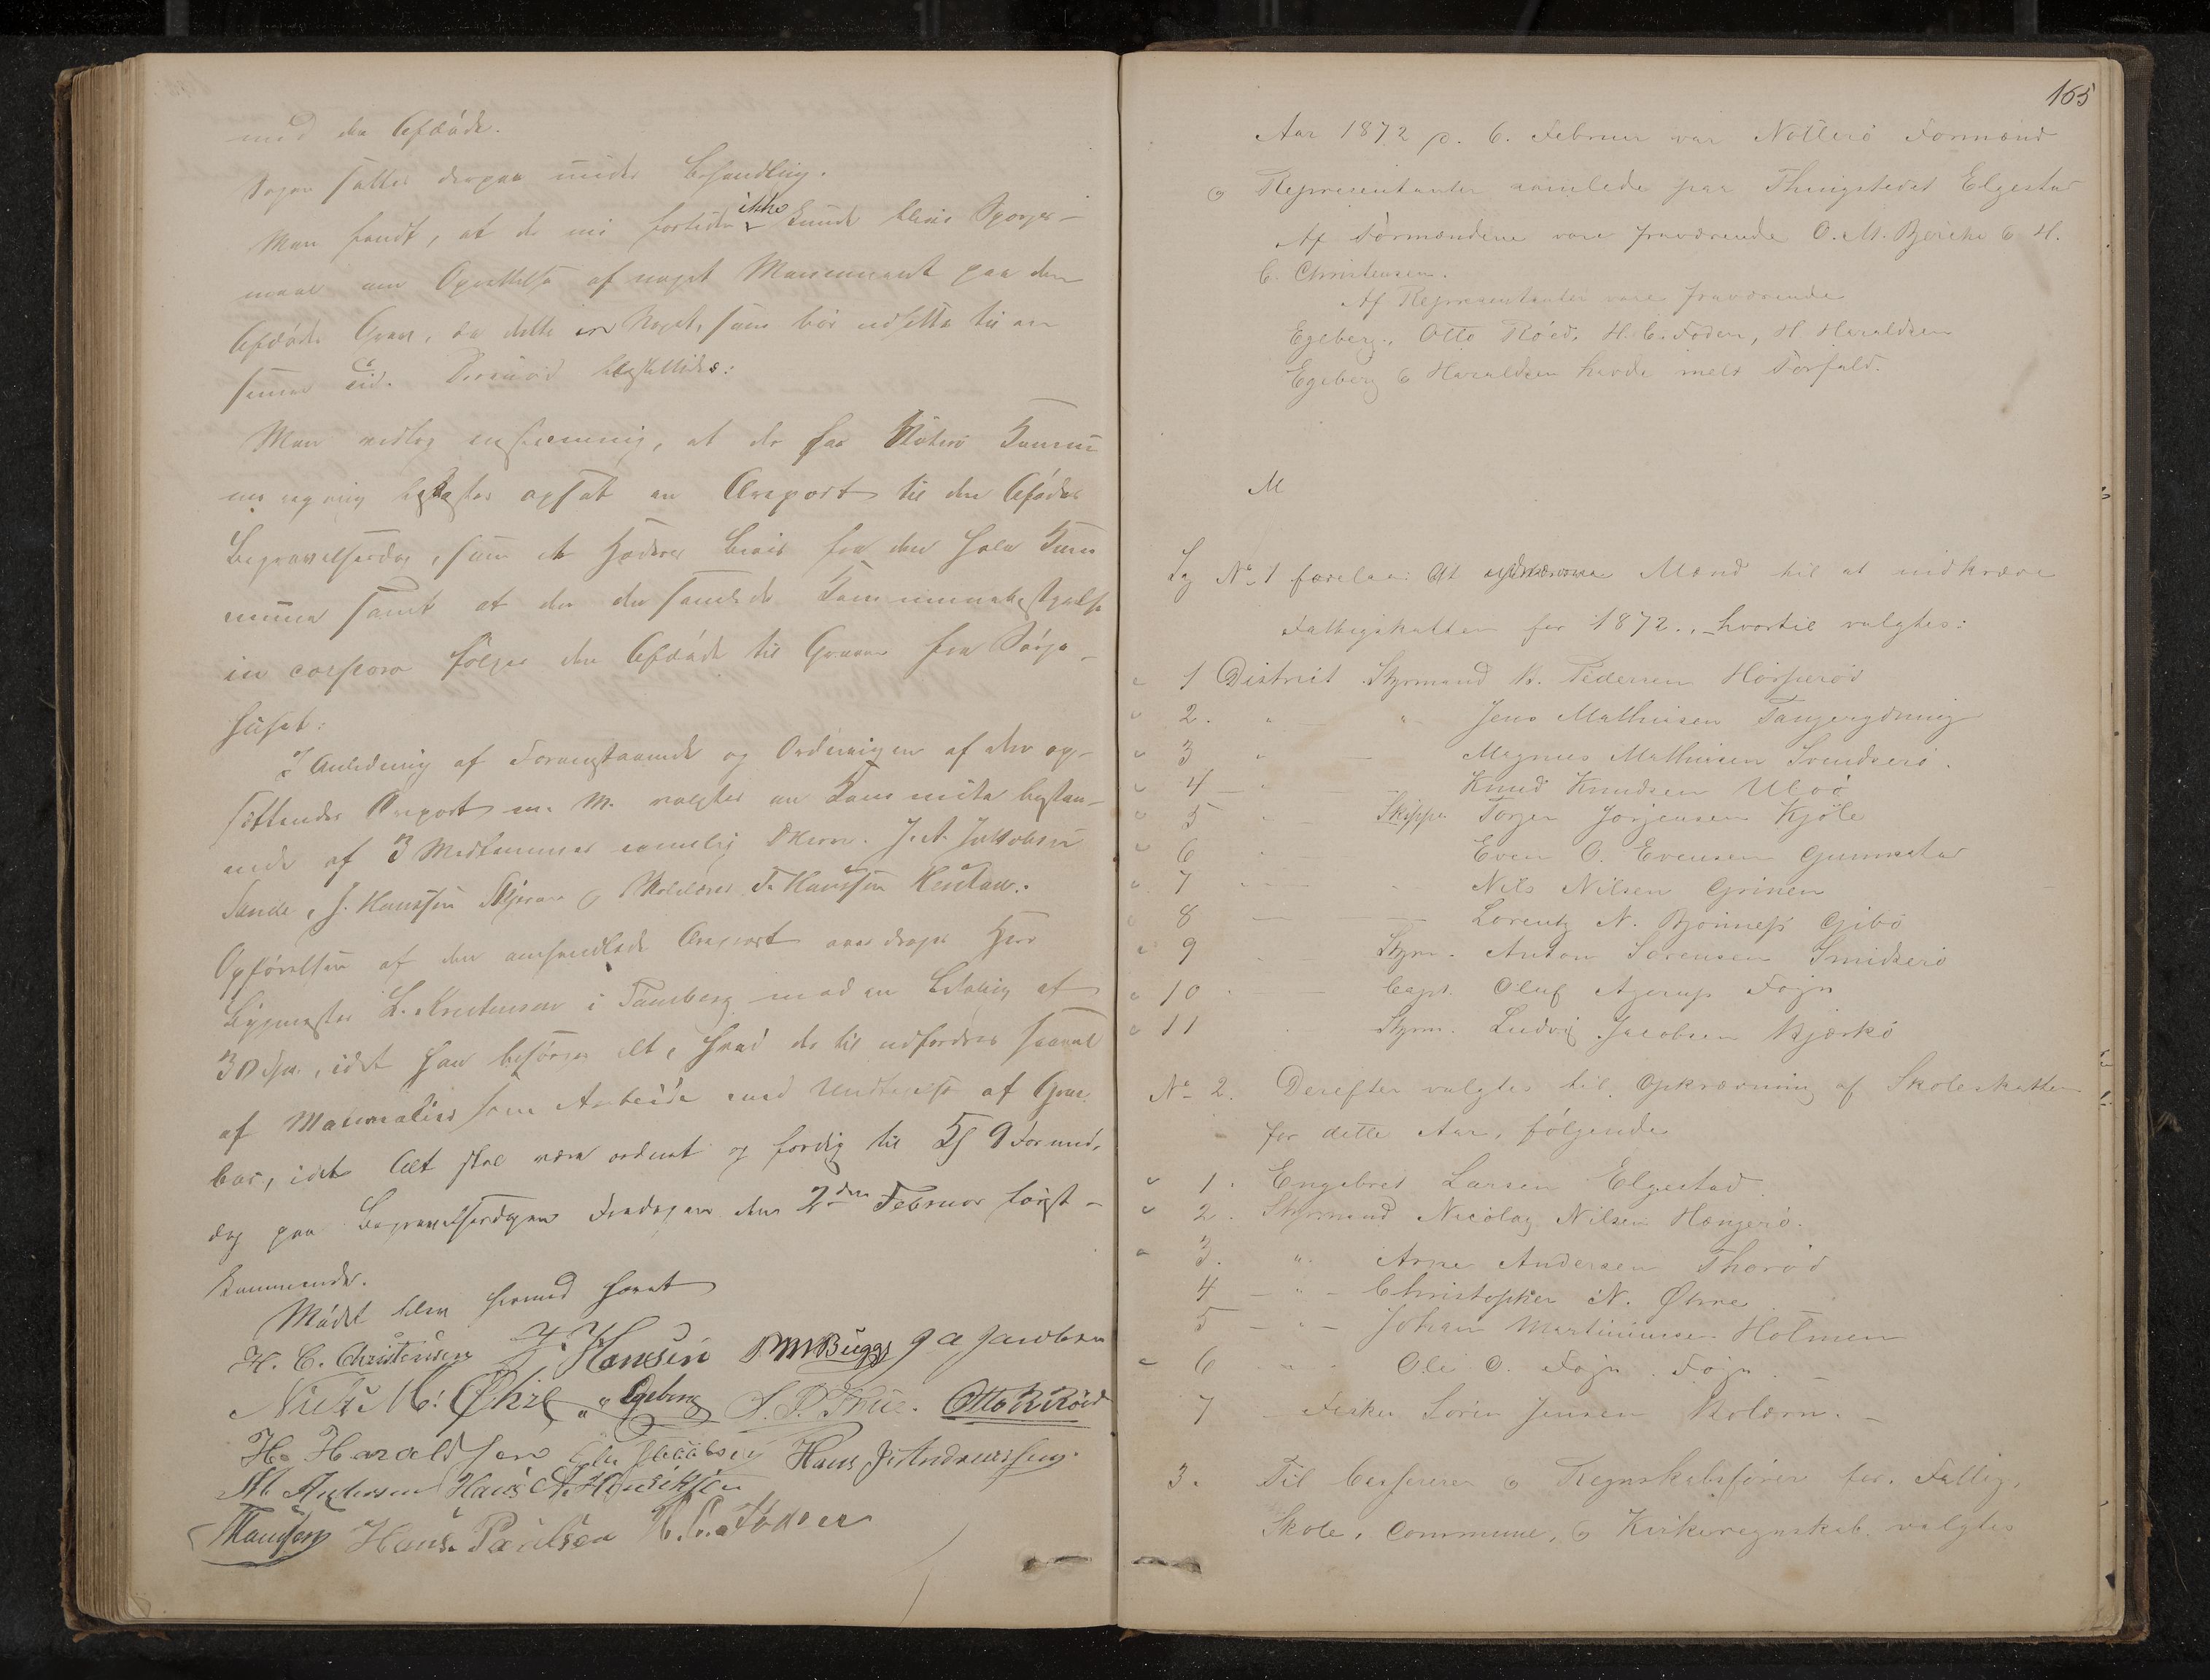 med den Afdøde.
Sagen sattes derpaa under Behandling.
Man fandt, at der nu fortiden ikke kunde blive Spørgs-
maal om Oprettelse af noget Monument paa den
Afdødes Grav, da dette er Noget, som bør udsættes til en
senere Tid. Derimod besluttedes:
Man vedtog enstemmig, at der paa Nøtterø Commu
nes regning bekostes opsat en Æreport til den Afdødes
Begravelsesdag, som et Hæders Beviis fra den hele Com
mune samt at den den samlede Kommunebestyrelse
in corpore følger den Afdøde til Graven fra Sørge-
huset:
I Anledning af Foranstaaende og Ordningen af den op-
sættendes Æreport m. M. valgtes en Kommite bestaa-
ende af 3 Medlemmer nemlig DHerrer. J. A. Jakobsen
Sande, J. Hanssen og Skolelærer F. Hanssen
Opførelsen af den omhandlede Æreport overdroges Herr
Bygmester L. Kristensen i Tønsberg mod en Betaling af
30 Spd., idet han besørger alt, hvad der til udfordres saavel
af Materialier som Arbeide med Undtagelse af Gran
bar, idet Alt skal være ordnet og færdig til Kl 9 Formid-
dag paa Begravelsesdagen Fredagen den 2den Februar først-
kommende.
Mødet blev hermed hævet
H. C. Christensen J. Hansen O M Bugge J A Jacobsen
Niels M: Øhre Egeberg Otto R Røed
H. Haraldsen Hans J. Andreassen
M. Andersen Hans A. Henriksen
FHansen Hans. Paulsen H. C. Foden
165
Aar 1872 d. 6. Februar var Nøtterø Formænd
o Representanter samlede paa Thingstedet Elgestad
Af Formændene vare fraværende O. M. Bjerche & H.
C. Christensen.
Af Representanter vare fraværende
Egeberg, Otto Røed, H. C. Foden, H Haraldsen
Egeberg & Haraldsen havde meldt Forfald.
M
Sag No 1 forelaa: At Mænd til at indkræve
Fattigskatten for 1872., hvortil valgtes:
1 District Styrmand Pedersen
2. " " Jens Mathisen Tangerydning
3 " Magnus Mathisen Svendserø.
4 " Knud Knudsen Ubøe
5 " Skipper Torger Jørgensen Kjøle
6 " Even O. Evensen Gunnestad
7 " Nils Nilsen Grinen
8 Lorentz N. Bjønness Gibø
9 " Styrm. Anton Sørensen Smidserø
10 " Capt. Oluf Agerup Føyn
11 Styrm. Ludvig Jacobsen Bjerkø
No 2. Derefter valgtes til Opkrævning af Skoleskatten
for dette Aar, følgende
1. Engebret Larsen Elgestad
2. Styrmand Nicolay Nilsen Hængerø.
3. " Arne Andersen Thorød
4 - " - Christopher N. Øhre
5 - " - Johan Martiniusen Holmen
6 " Ole O. Føyn. Føyn.
7 - Fisker Sørin Jensen
3. Til Casserer o Regnskabsfører for Fattig,
Skole, Commune, & Kirkeregnskab. valgtes